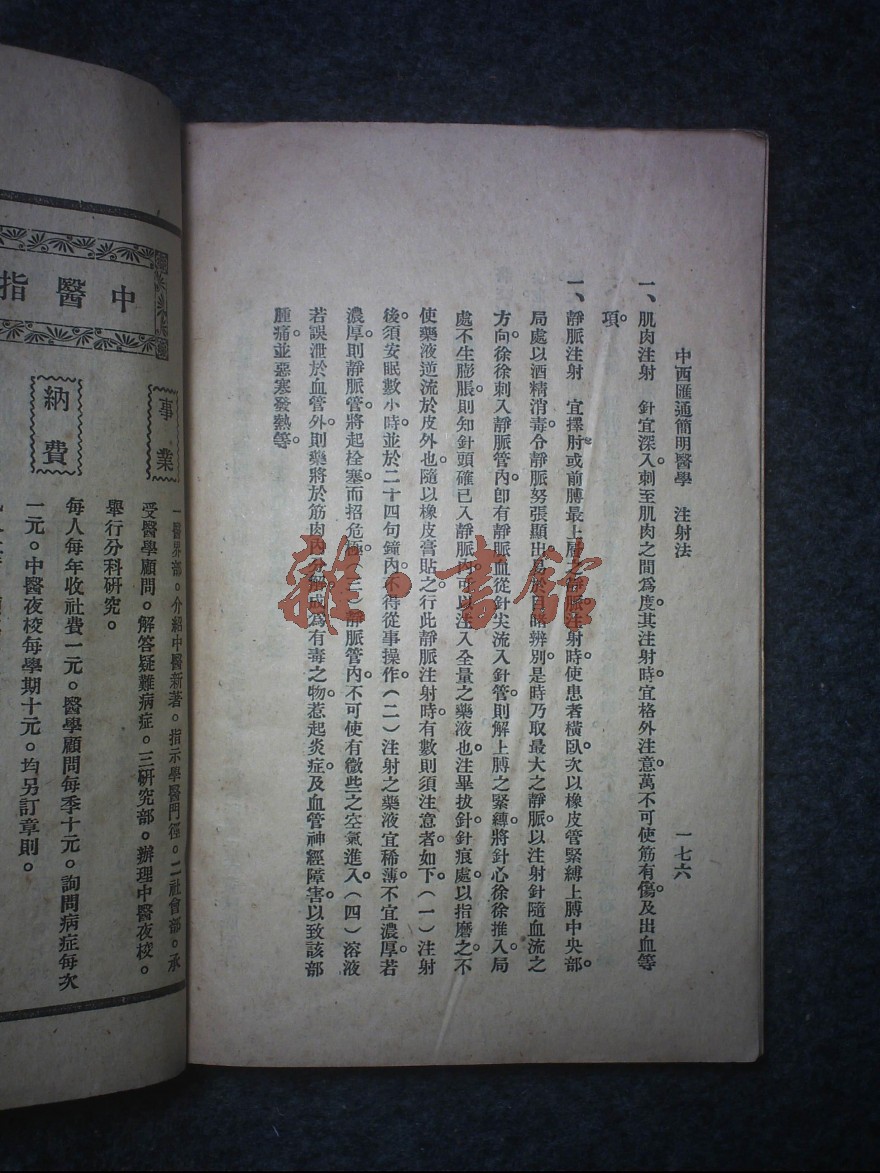 中西匯通簡明醫學　注射法　一七六
一、肌肉注射　針宜深入。刺至肌肉之間爲度。其注射時。宜格外注意。萬不可使筋有傷。及出血等
項。
一、靜脈注射　宜擇肘或前膊最上層之靜脈。注射時。使患者橫臥。次以橡皮管緊縛上膊中央部。
局處以酒精消毒。令靜脈努張顯出。易於目
辨別。是時乃取最大之靜脈。以注射針隨血流之
方向。徐徐刺入靜脈管內。卽有靜脈血從針尖流入針管。則解上膊之緊縛。將針心徐徐推入。局
處不生膨脹。則知針頭確已入靜脈內。可以注入全量之藥液也。注畢拔針。針痕處以指磨之。不
使藥液逆流於皮外也。隨以橡皮膏貼之。行此靜脈注射時。有數則須注意者如下。（一）注射
後。須安眠數小時。並於二十四句鐘內。不得從事操作。（二）注射之藥液宜稀薄。不宜濃厚。若
濃厚則靜脈管將起栓塞。而招危極。（三）靜脈管內。不可使有微些之空氣進入。（四）溶液
若誤泄於血管外。則藥將於筋肉內分解。成爲有毒之物。惹起炎症。及血管神經障害。以致該部
腫痛。並惡寒發熱等。
中醫指
事業
一醫界部。介紹中醫新著。指示學醫門徑。二社會部。承
受醫學顧問。解答疑難病症。三硏究部。辦理中醫夜校。
舉行分科研究。
納費
每人每年收社費一元。醫學顧問每季十元。詢問病症每次
一元。中醫夜校每學期十元。均另訂章則。
雜·書館